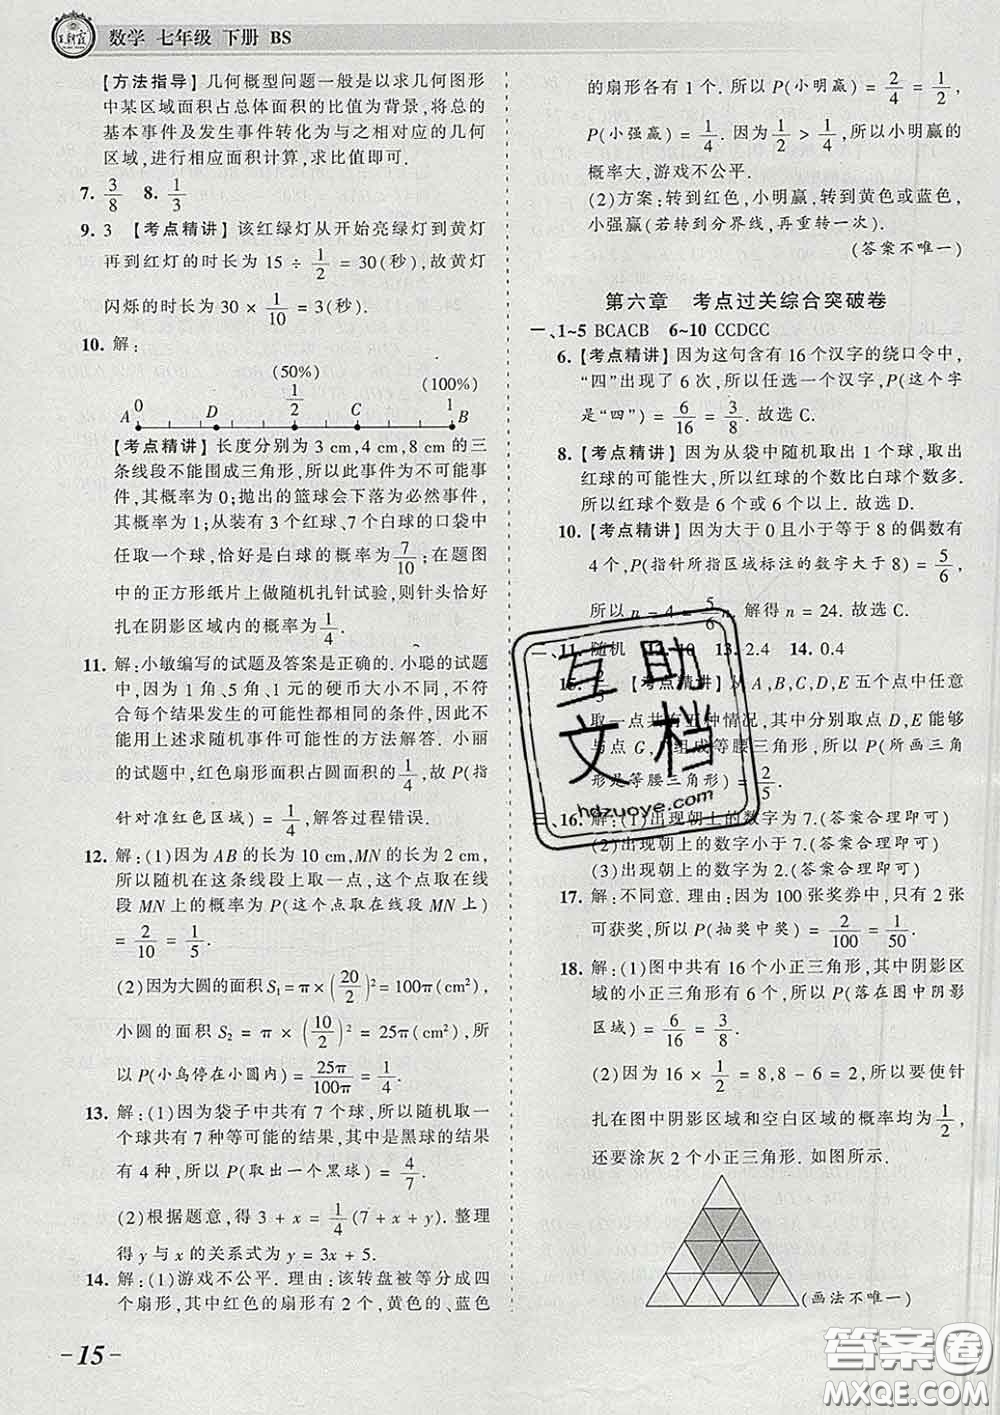 王朝霞 数学 七年级 下册 BS
【方法指导】几何概型问题一般是以求几何图形
中某区域面积占总体面积的比值为背景,将总的
基本事件及发生事件转化为与之相对应的几何
区域,进行相应面积计算,求比值即可.
7. 3/8 8. 1/3
9. 3 【考点精讲】该红绿灯从开始亮绿灯到黄灯
再到红灯的时长为 15 ÷ 1/2 = 30(秒),故黄灯
闪烁的时长为 30 × 1/10 = 3(秒).
10. 解:
(50%) (100%)
0 1/2 1
A D C B
【考点精讲】长度分别为 3 cm,4 cm,8 cm 的三
条线段不能围成三角形,所以此事件为不可能事
件,其概率为 0;抛出的篮球会下落为必然事件,
其概率为 1;从装有 3 个红球、7 个白球的口袋中
任取一个球,恰好是白球的概率为 7/10;在题图
中的正方形纸片上做随机扎针试验,则针头恰好
扎在阴影区域内的概率为 1/4.
11. 解:小敏编写的试题及答案是正确的. 小聪的试题
中,因为 1 角、5 角、1 元的硬币大小不同,不符
合每个结果发生的可能性都相同的条件,因此不
能用上述求随机事件可能性的方法解答. 小丽
的试题中,红色扇形面积占圆面积的 1/4,故 P(指
针对准红色区域) = 1/4,解答过程错误.
12. 解:(1)因为 AB 的长为 10 cm,MN 的长为 2 cm,
所以随机在这条线段上取一点,这个点取在线
段 MN 上的概率为 P(这个点取在线段 MN 上)
= 2/10 = 1/5.
(2)因为大圆的面积 S₁ = π × (20/2)² = 100π(cm²),
小圆的面积 S₂ = π × (10/2)² = 25π(cm²),所
以 P(小鸟停在小圆内) = 25π/100π = 1/4.
13. 解:(1)因为袋子中共有 7 个球,所以随机取一
个球共有 7 种等可能的结果,其中是黑球的结果
有 4 种,所以 P(取出一个黑球) = 4/7.
(2)根据题意,得 3 + x = 1/4(7 + x + y). 整理
得 y 与 x 的关系式为 y = 3x + 5.
14. 解:(1)游戏不公平. 理由:该转盘被等分成四
个扇形,其中红色的扇形有 2 个,黄色的、蓝色
的扇形各有 1 个. 所以 P(小明赢) = 2/4 = 1/2,
P(小强赢) = 1/4. 因为 1/2 > 1/4,所以小明赢的
概率大,游戏不公平.
(2)方案:转到红色,小明赢,转到黄色或蓝色,
小强赢(若转到分界线,再重转一次).
(答案不唯一)
第六章 考点过关综合突破卷
一、1~5 BCACB 6~10 CCDCC
6.【考点精讲】因为这句含有 16 个汉字的绕口令中,
“四”出现了 6 次,所以任选一个汉字,P(这个字
是“四”) = 6/16 = 3/8. 故选 C.
8.【考点精讲】因为从袋中随机取出 1 个球,取出
红球的可能性大,所以红球的个数比白球个数多.
所以红球个数是 6 个或 6 个以上. 故选 D.
10.【考点精讲】因为大于 0 且小于等于 8 的偶数有
4 个,P(指针所指区域标注的数字大于 8) = 5/6,
所以 n - 4 = 5/6 n. 解得 n = 24. 故选 C.
二、11. 随机 12. 10 13. 2.4 14. 0.4
15. 【考点精讲】从 A,B,C,D,E 五个点中任意
取一点共有五种情况,其中分别取点 D,E 能够
与点 G, 组成等腰三角形,所以 P(所画三角
形是等腰三角形) = 2/5.
三、16. 解:(1)出现朝上的数字为 7.(答案合理即可)
(2)出现朝上的数字小于 7.(答案合理即可)
(3)出现朝上的数字为 2.(答案合理即可)
17. 解:不同意. 理由:因为 100 张奖券中,只有 2 张
可获奖,所以 P(抽奖中奖) = 2/100 = 1/50.
18. 解:(1)图中共有 16 个小正三角形,其中阴影区
域的小正三角形有 6 个,所以 P(落在图中阴影
区域) = 6/16 = 3/8.
(2)因为 16 × 1/2 = 8,8 - 6 = 2,所以要使针
扎在图中阴影区域和空白区域的概率均为 1/2,
还要涂灰 2 个小正三角形. 如图所示.
(画法不唯一)
-15-
互助
文档
hdzuoye.com
答案卷
MXQE.COM